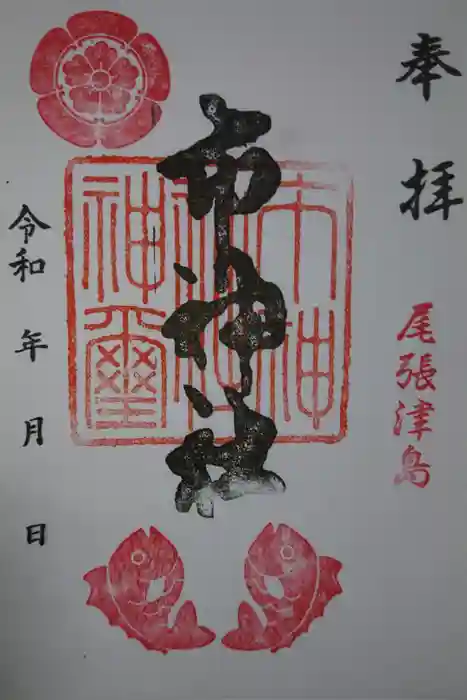 奉拝
尾張津島
市神社
市神
社
神璽
令和 年 月 日